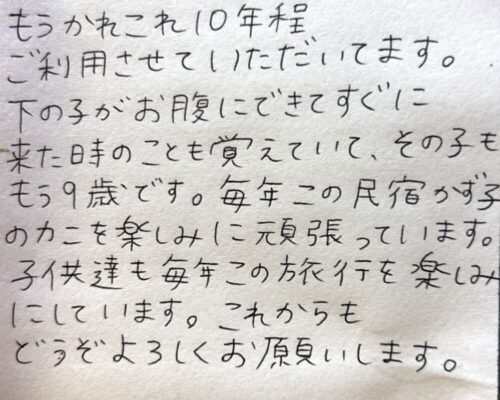 もうかれこれ10年程
ご利用させていただいてます。
下の子がお腹にできてすぐに
来た日時のことも覚えていて、その子も
もう9歳です。毎年この民宿かず子
のカニを楽しみに頑張っています。
子供達も毎年この旅行を楽しみ
にしています。これからも
どうぞよろしくお願いします。